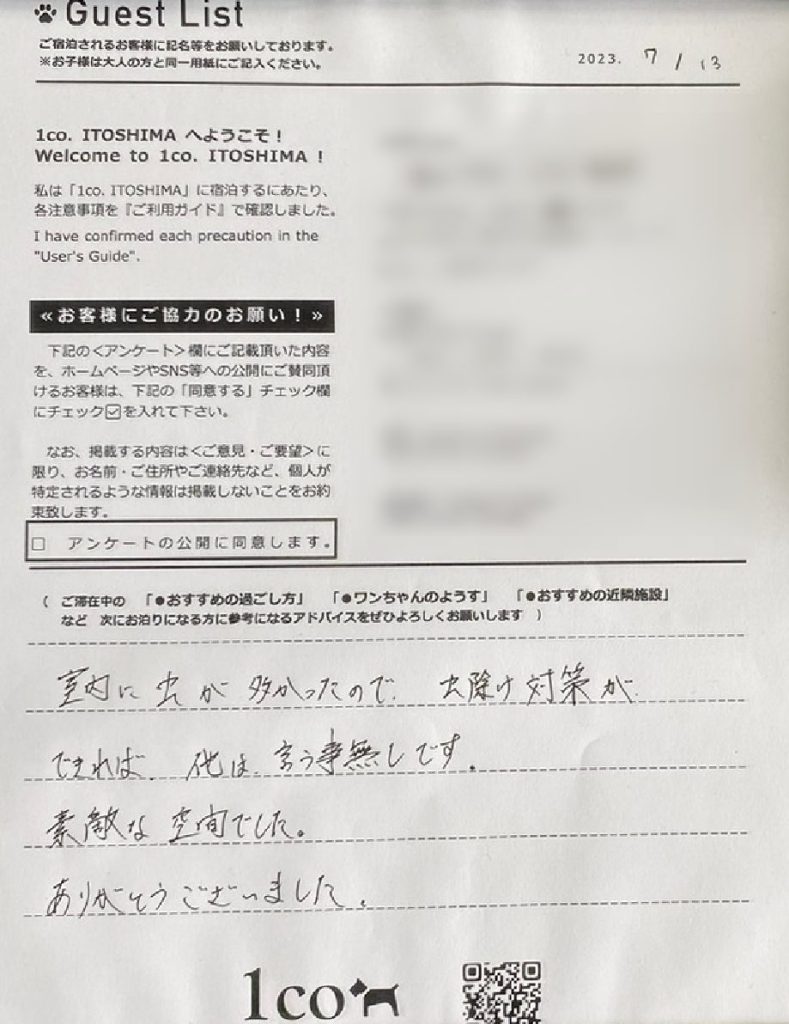 Guest List
ご宿泊されるお客様に記名等をお願いしております。
※お子様は大人の方と同一用紙にご記入ください。
2023. 7 / 13
1co. ITOSHIMA へようこそ！
Welcome to 1co. ITOSHIMA !
私は「1co. ITOSHIMA」に宿泊するにあたり、
各注意事項を『ご利用ガイド』で確認しました。
I have confirmed each precaution in the
"User's Guide".
≪お客様にご協力のお願い！≫
下記の＜アンケート＞欄にご記載頂いた内容
を、ホームページやSNS等への公開にご賛同頂
けるお客様は、下記の「同意する」チェック欄
にチェック☑を入れて下さい。
なお、掲載する内容は＜ご意見・ご要望＞に
限り、お名前・ご住所やご連絡先など、個人が
特定されるような情報は掲載しないことをお約
束致します。
□ アンケートの公開に同意します。
（ ご滞在中の 「●おすすめの過ごし方」 「●ワンちゃんのようす」 「●おすすめの近隣施設」
など 次にお泊りになる方に参考になるアドバイスをぜひよろしくお願いします ）
室内に虫が多かったので、虫除け対策が
できれば、他は言う事無しです。
素敵な空間でした。
ありがとうございました。
1co